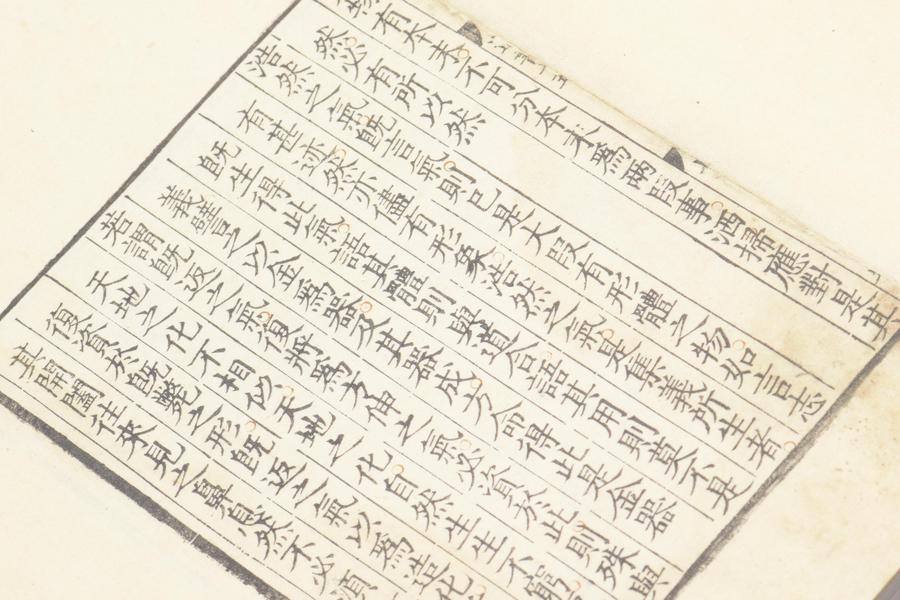 物有本末不可分本末爲兩段事洒掃應對是其
然必有所以然
浩然之氣旣言氣則已是大段有形體之物如言志
有甚迹然亦儘有形象浩然之氣是集義所生者
旣生得此氣語其體則與道合語其用則莫不是
義譬之以金爲器及其器成方命得此是金器
若謂旣返之氣復將爲方伸之氣必資於此則殊與
天地之化不相似天地之化自然生生不窮
復資於旣斃之形旣返之氣以爲造化
其開闔往來見之鼻息然不必須